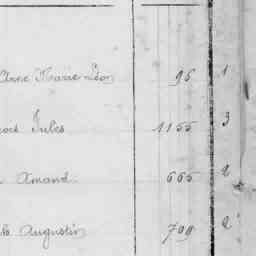 Anne Marie Léon 95 1
Jules 1155 3
Amand 665 2
Augustin 709 2